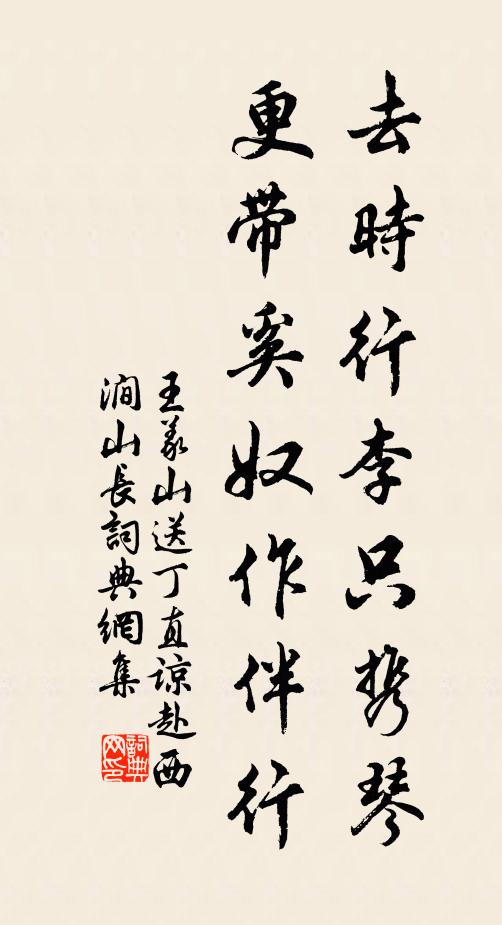 去時行李只携琴
更带奚奴作伴行
王義山送丁直諒赴西
澗山長詞典網集
詞典
网印